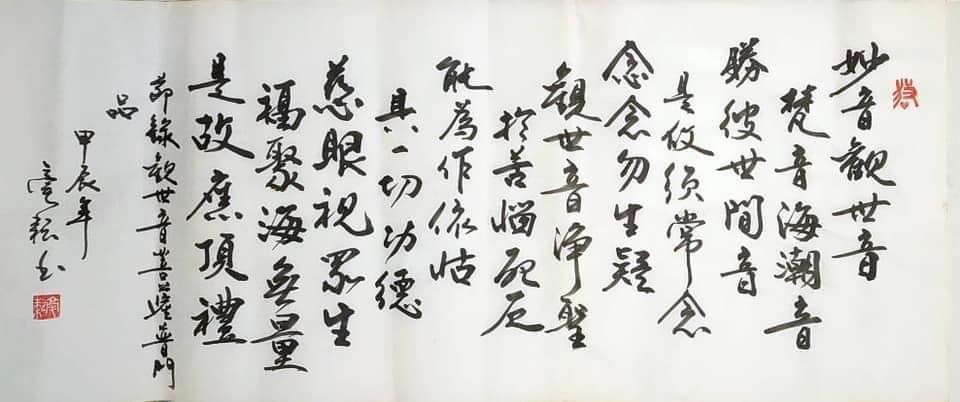 妙音觀世音
梵音海潮音
勝彼世間音
是故須常念
念念勿生疑
觀世音淨聖
於苦惱死厄
能為作依怙
具一切功德
慈眼視眾生
福聚海無量
是故應頂禮
節錄觀世音菩薩普門
品
甲辰年